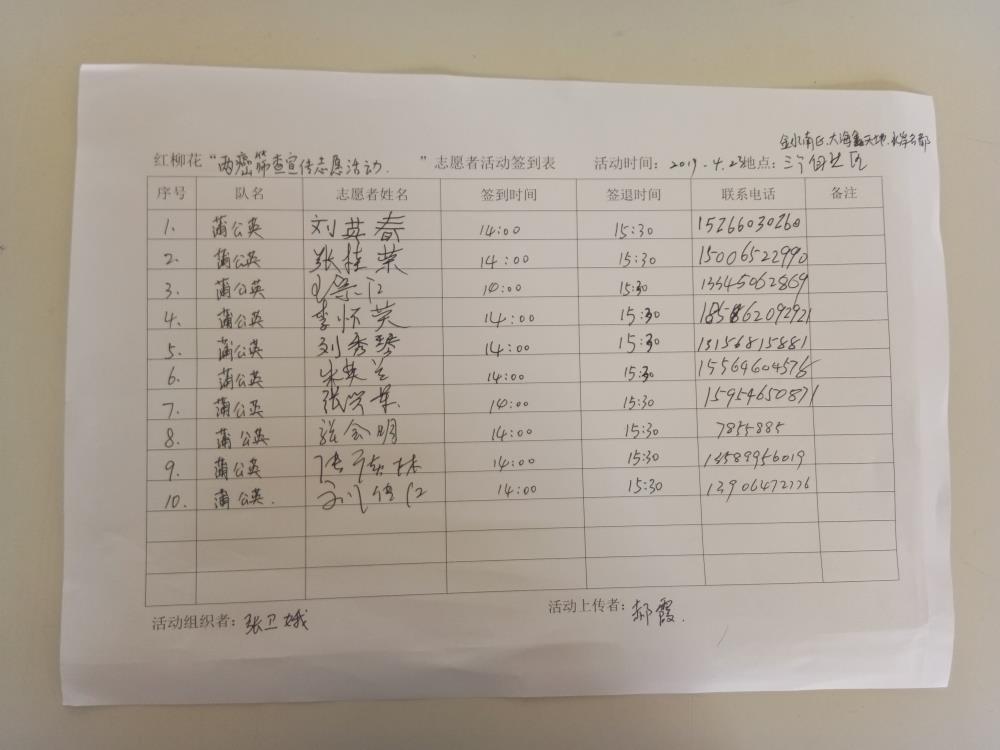 金水南区、大海鑫天地、水岸云都
红柳花“两癌筛查宣传志愿活动.”志愿者活动签到表 活动时间：2019.4.23 地点：三个自社区
序号 队名 志愿者姓名 签到时间 签退时间 联系电话 备注
1. 蒲公英 刘英春 14:00 15:30 15266030260
2. 蒲公英 张桂荣 14:00 15:30 15006522990
3. 蒲公英 14:00 15:30 13345062869
4. 蒲公英 李怀英 14:00 15:30
5. 蒲公英 刘秀琴 14:00 15:30 13156815881
6. 蒲公英 朱英兰 14:00 15:30 15564604576
7. 蒲公英 张兴荣 14:00 15:30 15954650871
8. 蒲公英 张会明 14:00 15:30 7855885
9. 蒲公英 14:00 15:30 13589956019
10. 蒲公英. 14:00 15:30
活动组织者：张卫娥 活动上传者：郝霞.